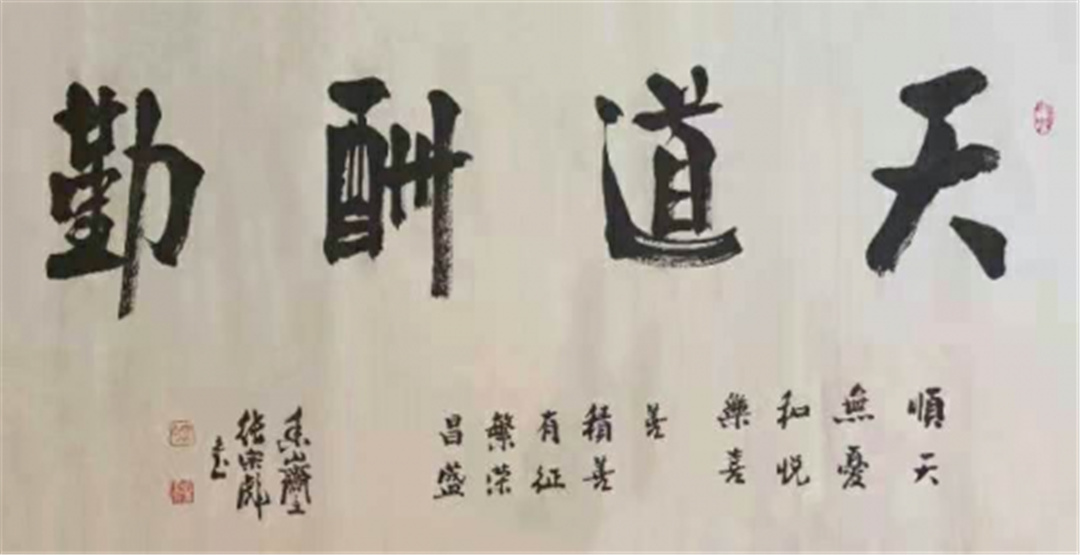 天道酬勤
順天
無憂
和悅
樂善
善
積善
有征
繁榮
昌盛
香山齋主
張宗彪
書